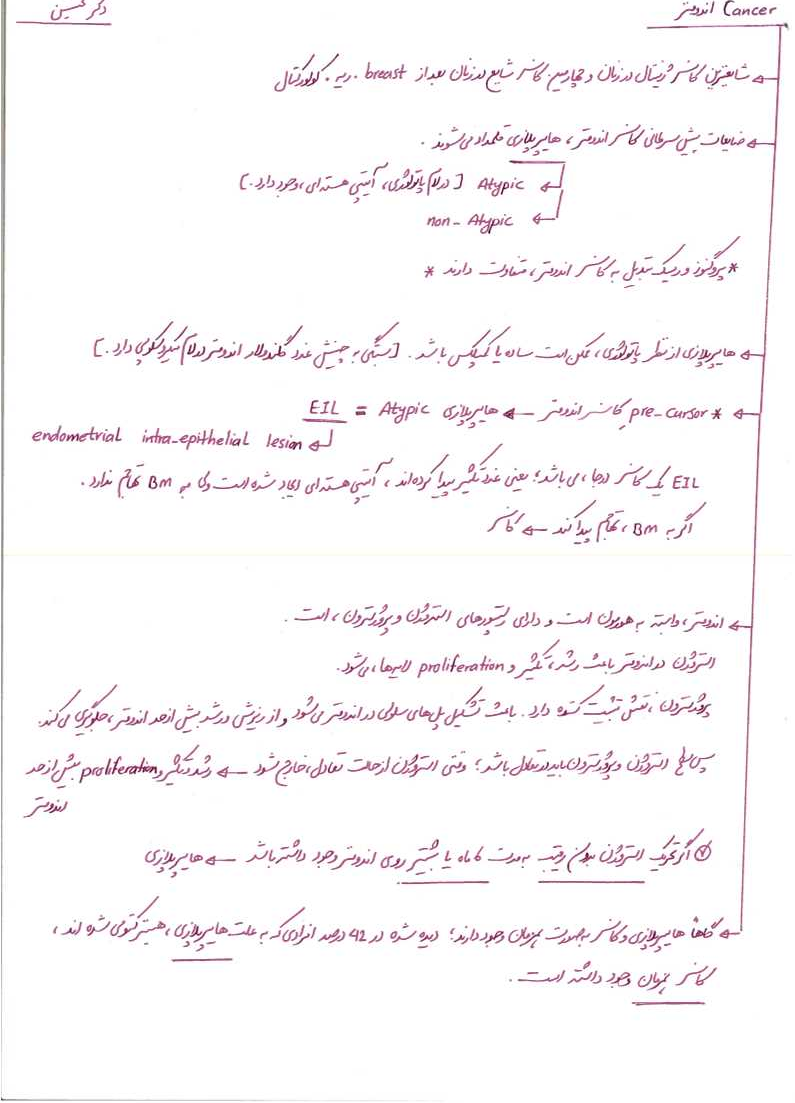 Cancer اندومتر
دکتر حسین
شایعترین کانسر ژنیتال در زنان و چهارمین کانسر شایع در زنان بعد از breast ، ریه ، کولورکتال
ضایعات پیش سرطانی کانسر اندومتر ، هایپرپلازی قلمداد می شوند .
Atypic [ در لام پاتولوژی ، آتیپی هسته ای ، وجود دارد . ]
non - Atypic
* پروگنوز و ریسک تبدیل به کانسر اندومتر ، متفاوت دارند *
هایپرپلازی از نظر پاتولوژی ، ممکن است ساده یا کمپلکس باشد . [ بستگی به چینش غدد گلندولار اندومتر در لام میکروسکوپی دارد . ]
* pre-cursor کانسر اندومتر ← هایپرپلازی Atypic = EIL
endometrial intra-epithelial lesion
EIL یک کانسر درجا ، می باشد ؛ یعنی غدد تکثیر پیدا کرده اند ، آتیپی هسته ای ایجاد شده است ولی به BM تهاجم ندارد .
اگر به BM ، تهاجم پیدا کند ← کانسر
اندومتر ، وابسته به هورمون است و دارای رسپتورهای استروژن و پروژسترون ، است .
استروژن در اندومتر باعث رشد ، تکثیر و proliferation لایه‌ها ، می شود .
پروژسترون ، نقش تثبیت کننده دارد . باعث تشکیل پل های سلولی در اندومتر می شود و از ریزش و رشد بیش از حد اندومتر ، جلوگیری می کند .
پس سطح استروژن و پروژسترون باید در تعادل باشد ؛ وقتی استروژن از حالت تعادل ، خارج شود ← رشد و تکثیر و proliferation بیش از حد
اندومتر
اگر تحریک استروژن بدون رقیب به مدت ۶ ماه یا بیشتر روی اندومتر وجود داشته باشد ← هایپرپلازی
گاهاً هایپرپلازی و کانسر به صورت همزمان وجود دارند ؛ دیده شده در 42 درصد افرادی که به علت هایپرپلازی ، هیسترکتومی شده اند ،
کانسر همزمان وجود داشته است .